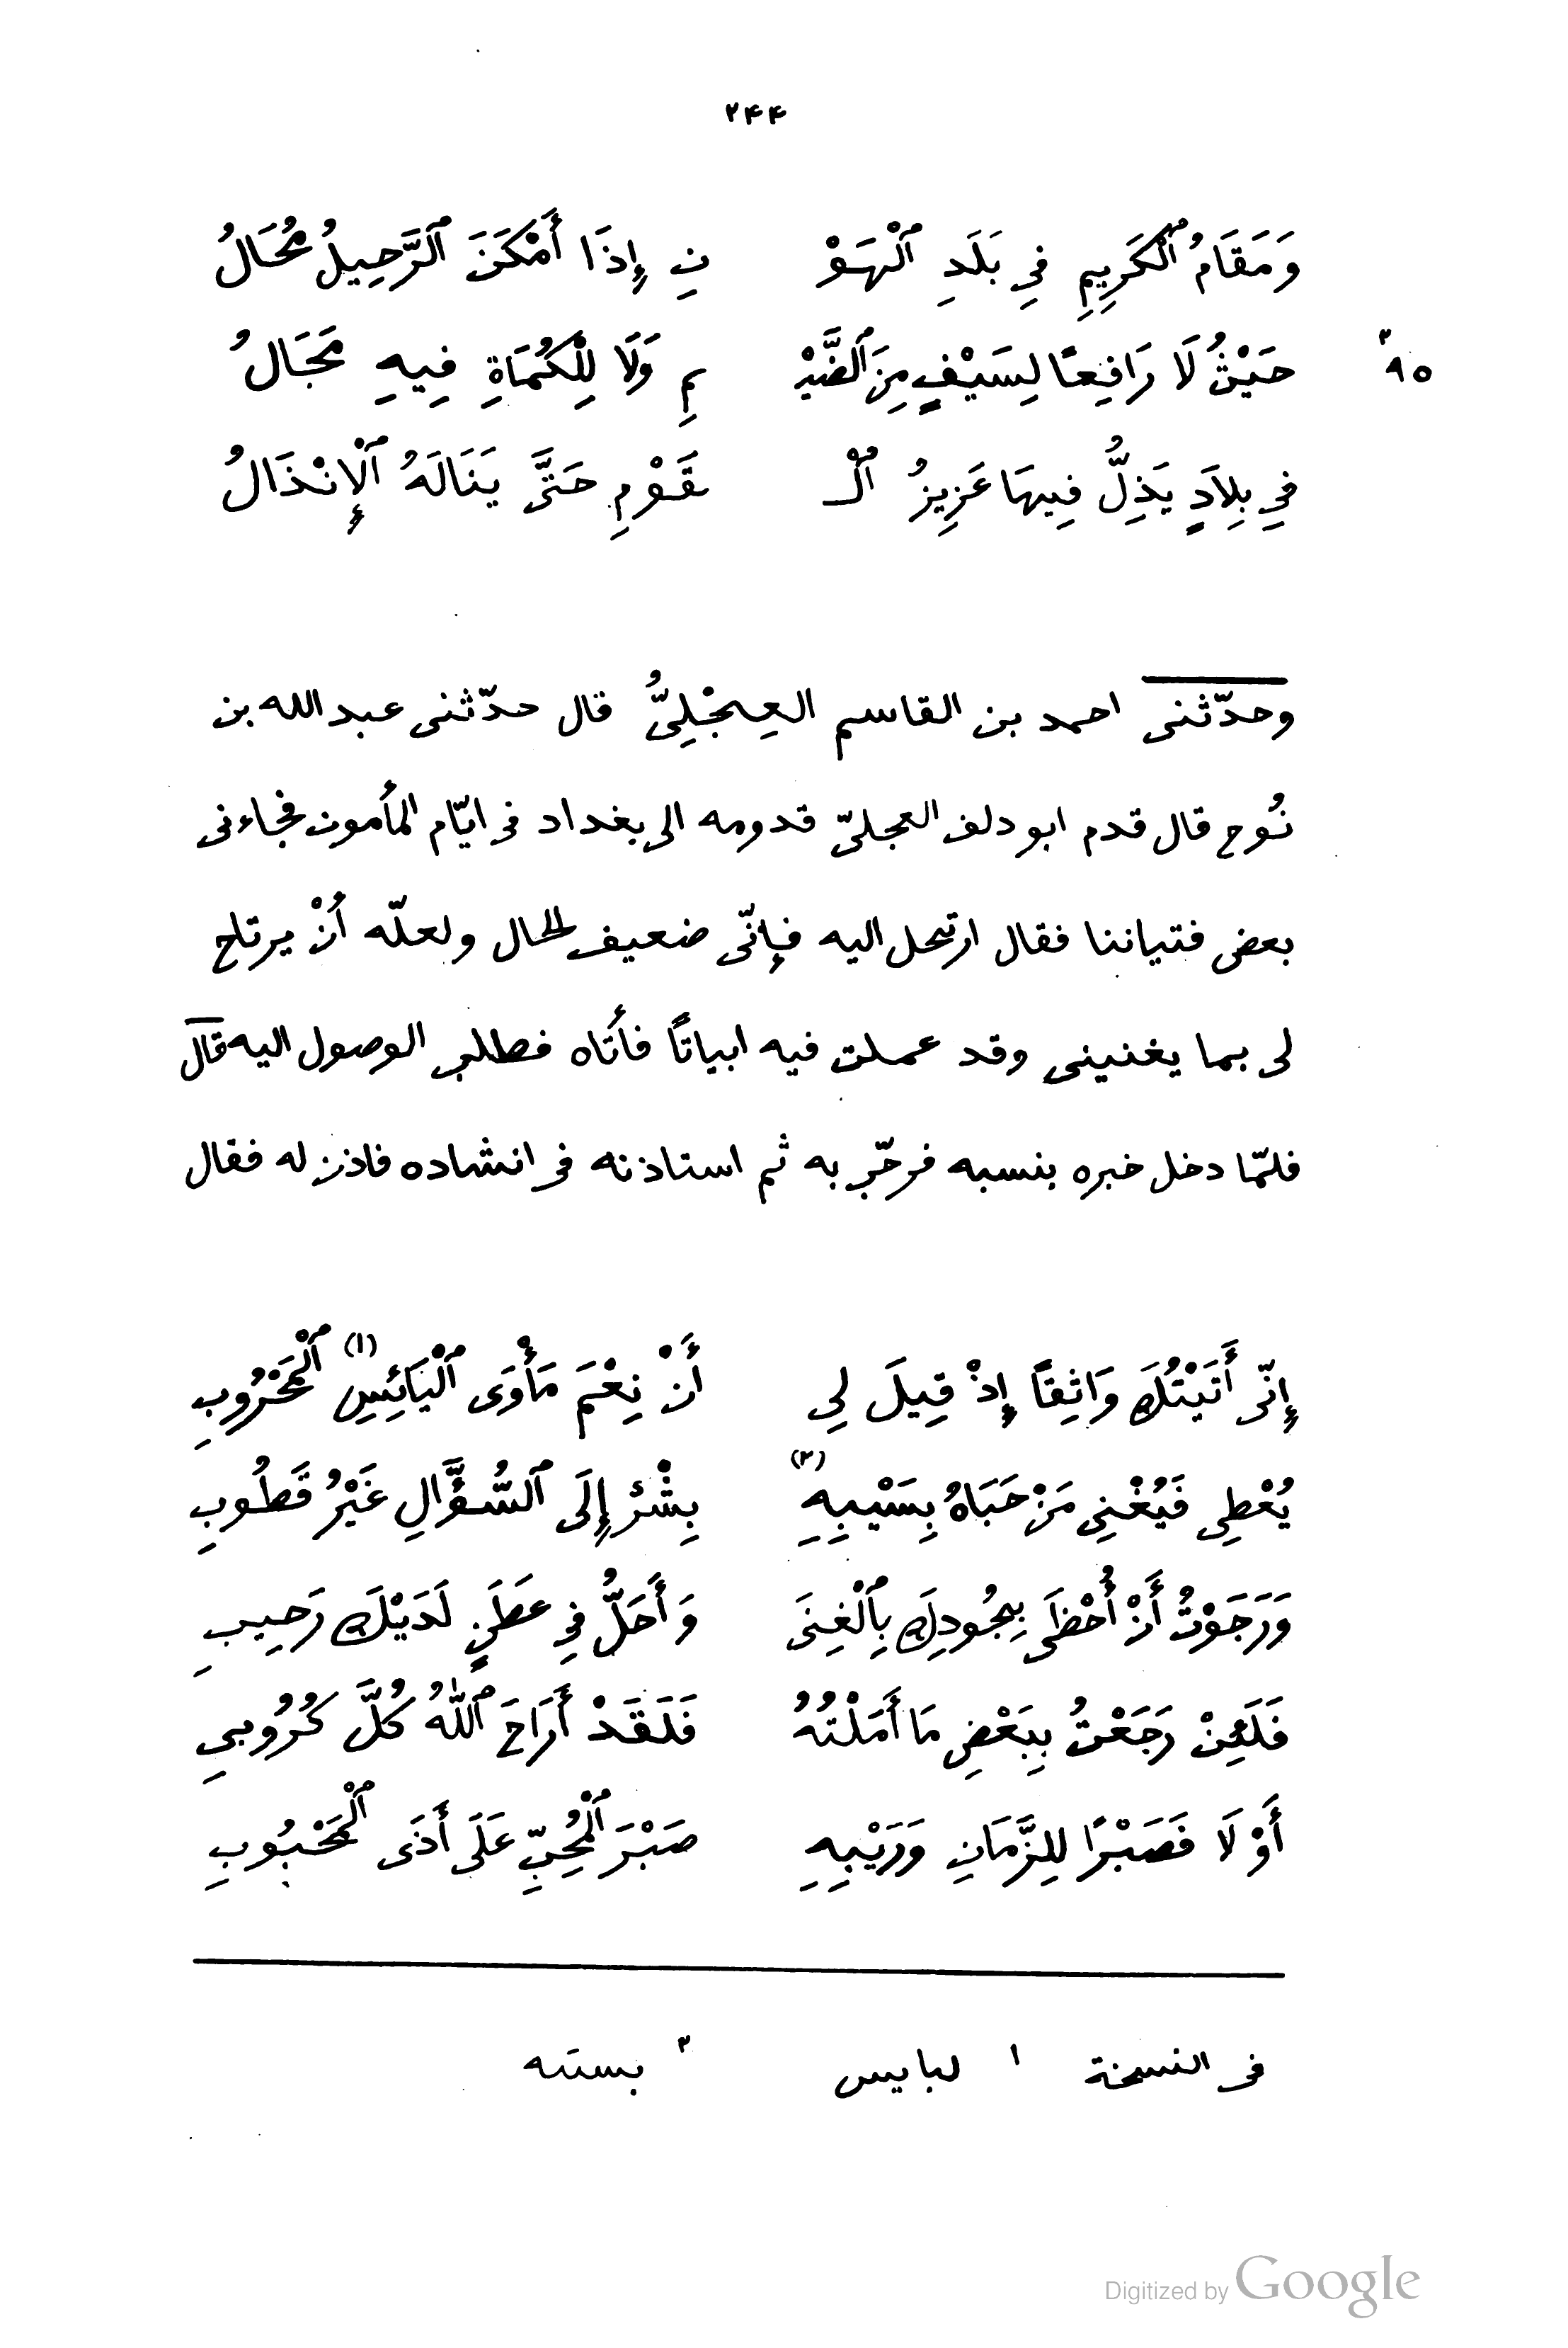 ٢٤٤
وَمَقَامُ ٱلْكَرِيمِ فِي بَلَدِ ٱلْهَوْ نِ إِذَا أَمْكَنَ ٱلرَّحِيلُ مُحَالُ
٩٥ ٢ حَيْثُ لَا رَافِعًا لِسَيْفٍ مِنَ ٱلضَّيْ مِ وَلَا لِلْكُمَاةِ فِيهِ مَجَالُ
فِي بِلَادٍ يَذِلُّ فِيهَا عَزِيزُ ٱلْـ ـقَوْمِ حَتَّى يَنَالَهُ ٱلْإِنْذَالُ
وحدّثنى احمد بن القاسم العِجْلِىُّ قال حدّثنى عبد الله بن
نُوح قال قدم ابو دلف العجلىّ قدومه الى بغداد فى ايّام المأمون فجاءنى
بعض فتياننا فقال ارتحل اليه فإنّى ضعيف الحال ولعلّه أنْ يرتاح
لى بما يغنينى وقد عملت فيه ابياتًا فأتاه فطلب الوصول اليه قال
فلمّا دخل خبره بنسبه فرحّب به ثم استاذنه فى انشاده فاذن له فقال
إِنّى أَتَيْتُكَ وَاثِقًا إِذْ قِيلَ لِى أَنْ نِعْمَ مَأْوَى ٱلْيَائِسِ (١) ٱلْمَحْرُوبِ
يُعْطِى فَيُغْنِى مَنْ حَبَاهُ بِسَيْبِهِ (٢) بِشْرٌ إِلَى ٱلسُّؤَّالِ غَيْرُ قَطُوبِ
وَرَجَوْتُ أَنْ أُحْظَى بِجُودِكَ بِٱلْغِنَى وَأَحَلُّ فِي عَطَنٍ لَدَيْكَ رَحِيبِ
فَلَئِنْ رَجَعْتُ بِبَعْضِ مَا أَمَلْتُهُ فَلَقَدْ أَرَاحَ ٱللّٰهُ كُلَّ كُرُوبِى
أَوْ لَا فَصَبْرًا لِلزَّمَانِ وَرَيْبِهِ صَبْرَ ٱلْمُحِبِّ عَلَى أَذَى ٱلْمَحْبُوبِ
فى النسخة ١ لبايس ٢ بسته
Digitized by Google